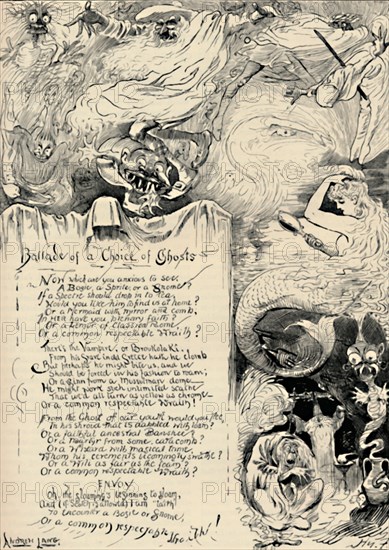 Ballade of a Choice of Ghosts
Now what are you anxious to see:
A Bogie, a Sprite, or a Gnome?
If a Spectre should drop in to tea,
Would you like him to find us at home?
Or a Mermaid with mirror and comb,
Or a Lemur of Classical Rome,
Or a common respectable Wraith?
There's the Vampire, or Broukolaki,
From his
But perhaps he might bite us, and we
Should be forced in his fashion to roam;
Or a Djinn from a Mussulman dome,
He might work such unlimited scathe
That we'd all turn as yellow as chrome
Or a common respectable Wraith!
From the Ghost of our youth would you flee,
In his shroud that is
Or a faithful ancestral Banshee?
Or a Martyr from some catacomb?
Or a Wizard with magical tome,
Whom his cerements becomingly swathe?
Or a Will as fair as the foam?
Or a common respectable Wraith?
ENVOY
Oh, the gloaming's beginning to gloom,
And
To encounter a Bogie or Gnome,
Or a common respectable
ANDREW LANG